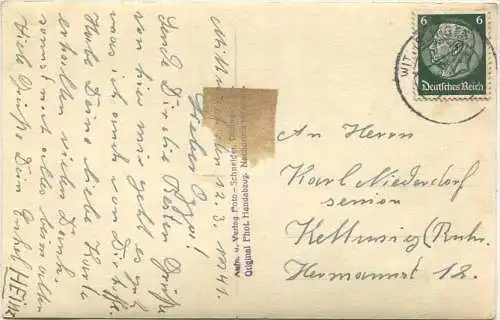 12.3.1941.
Lieber Opa!
Sende Dir die besten Grüße
von hier mir geht es gut
was ich auch von Dir hoffe.
Habe Deine liebe Karte
erhalten vielen Dank.
sonst noch alles beim alten
Viele Grüße Dein Enkel HEINI
Aufn. u. Verlag Foto-Schneider,
Original Phot. Handabzug. Nachdruck
6 6
Deutsches Reich
WIT
An Herrn
Karl Niederdorf
senior
Kettwig (Ruhr.
Hermannst 12.